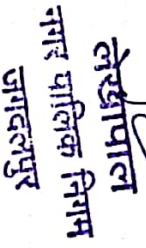 लेखापाल
नगर पालिक निगम
जगदलपुर